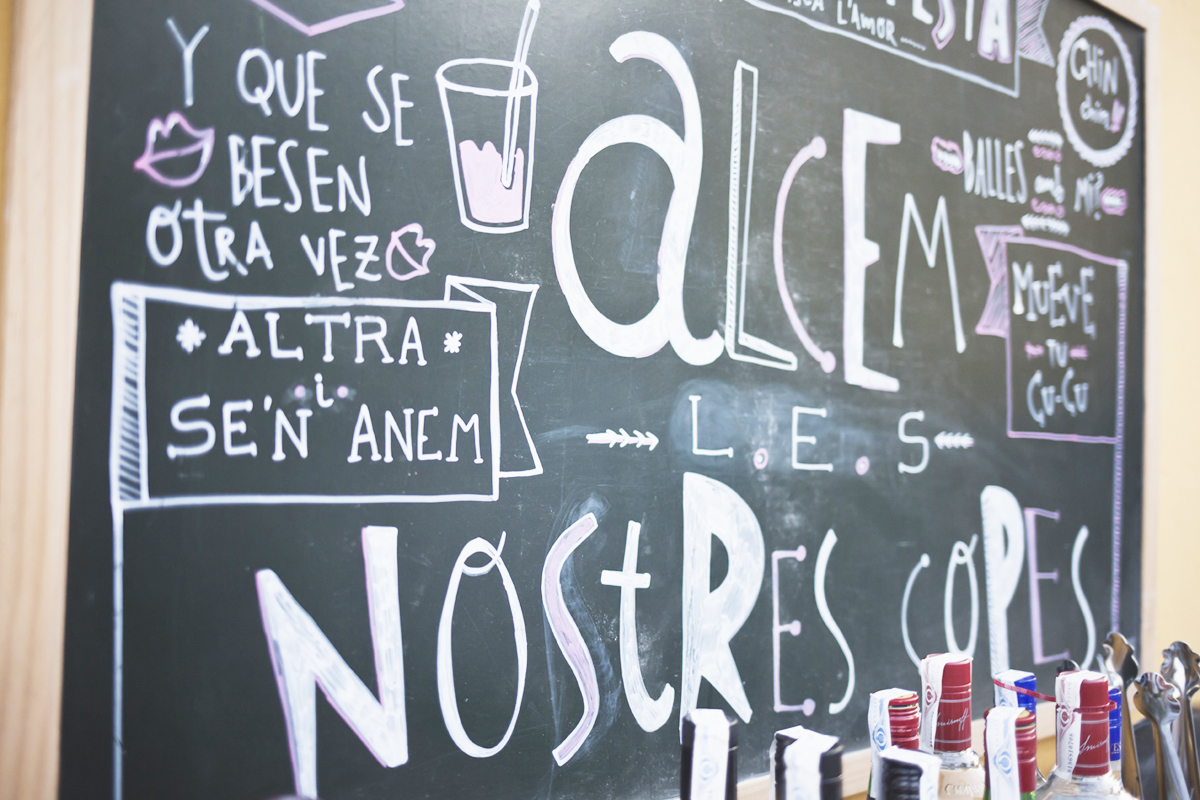 Y QUE SE
BESEN
OtRA VEZ
* ALTRA *
i
SE'N ANEM
aLCEM
L.E.S
NOStRES COPES
L'AMOR
CHIN
chin!!
BALLES amb Mi?
MUEVE
TU
CU-CU
Smirnoff